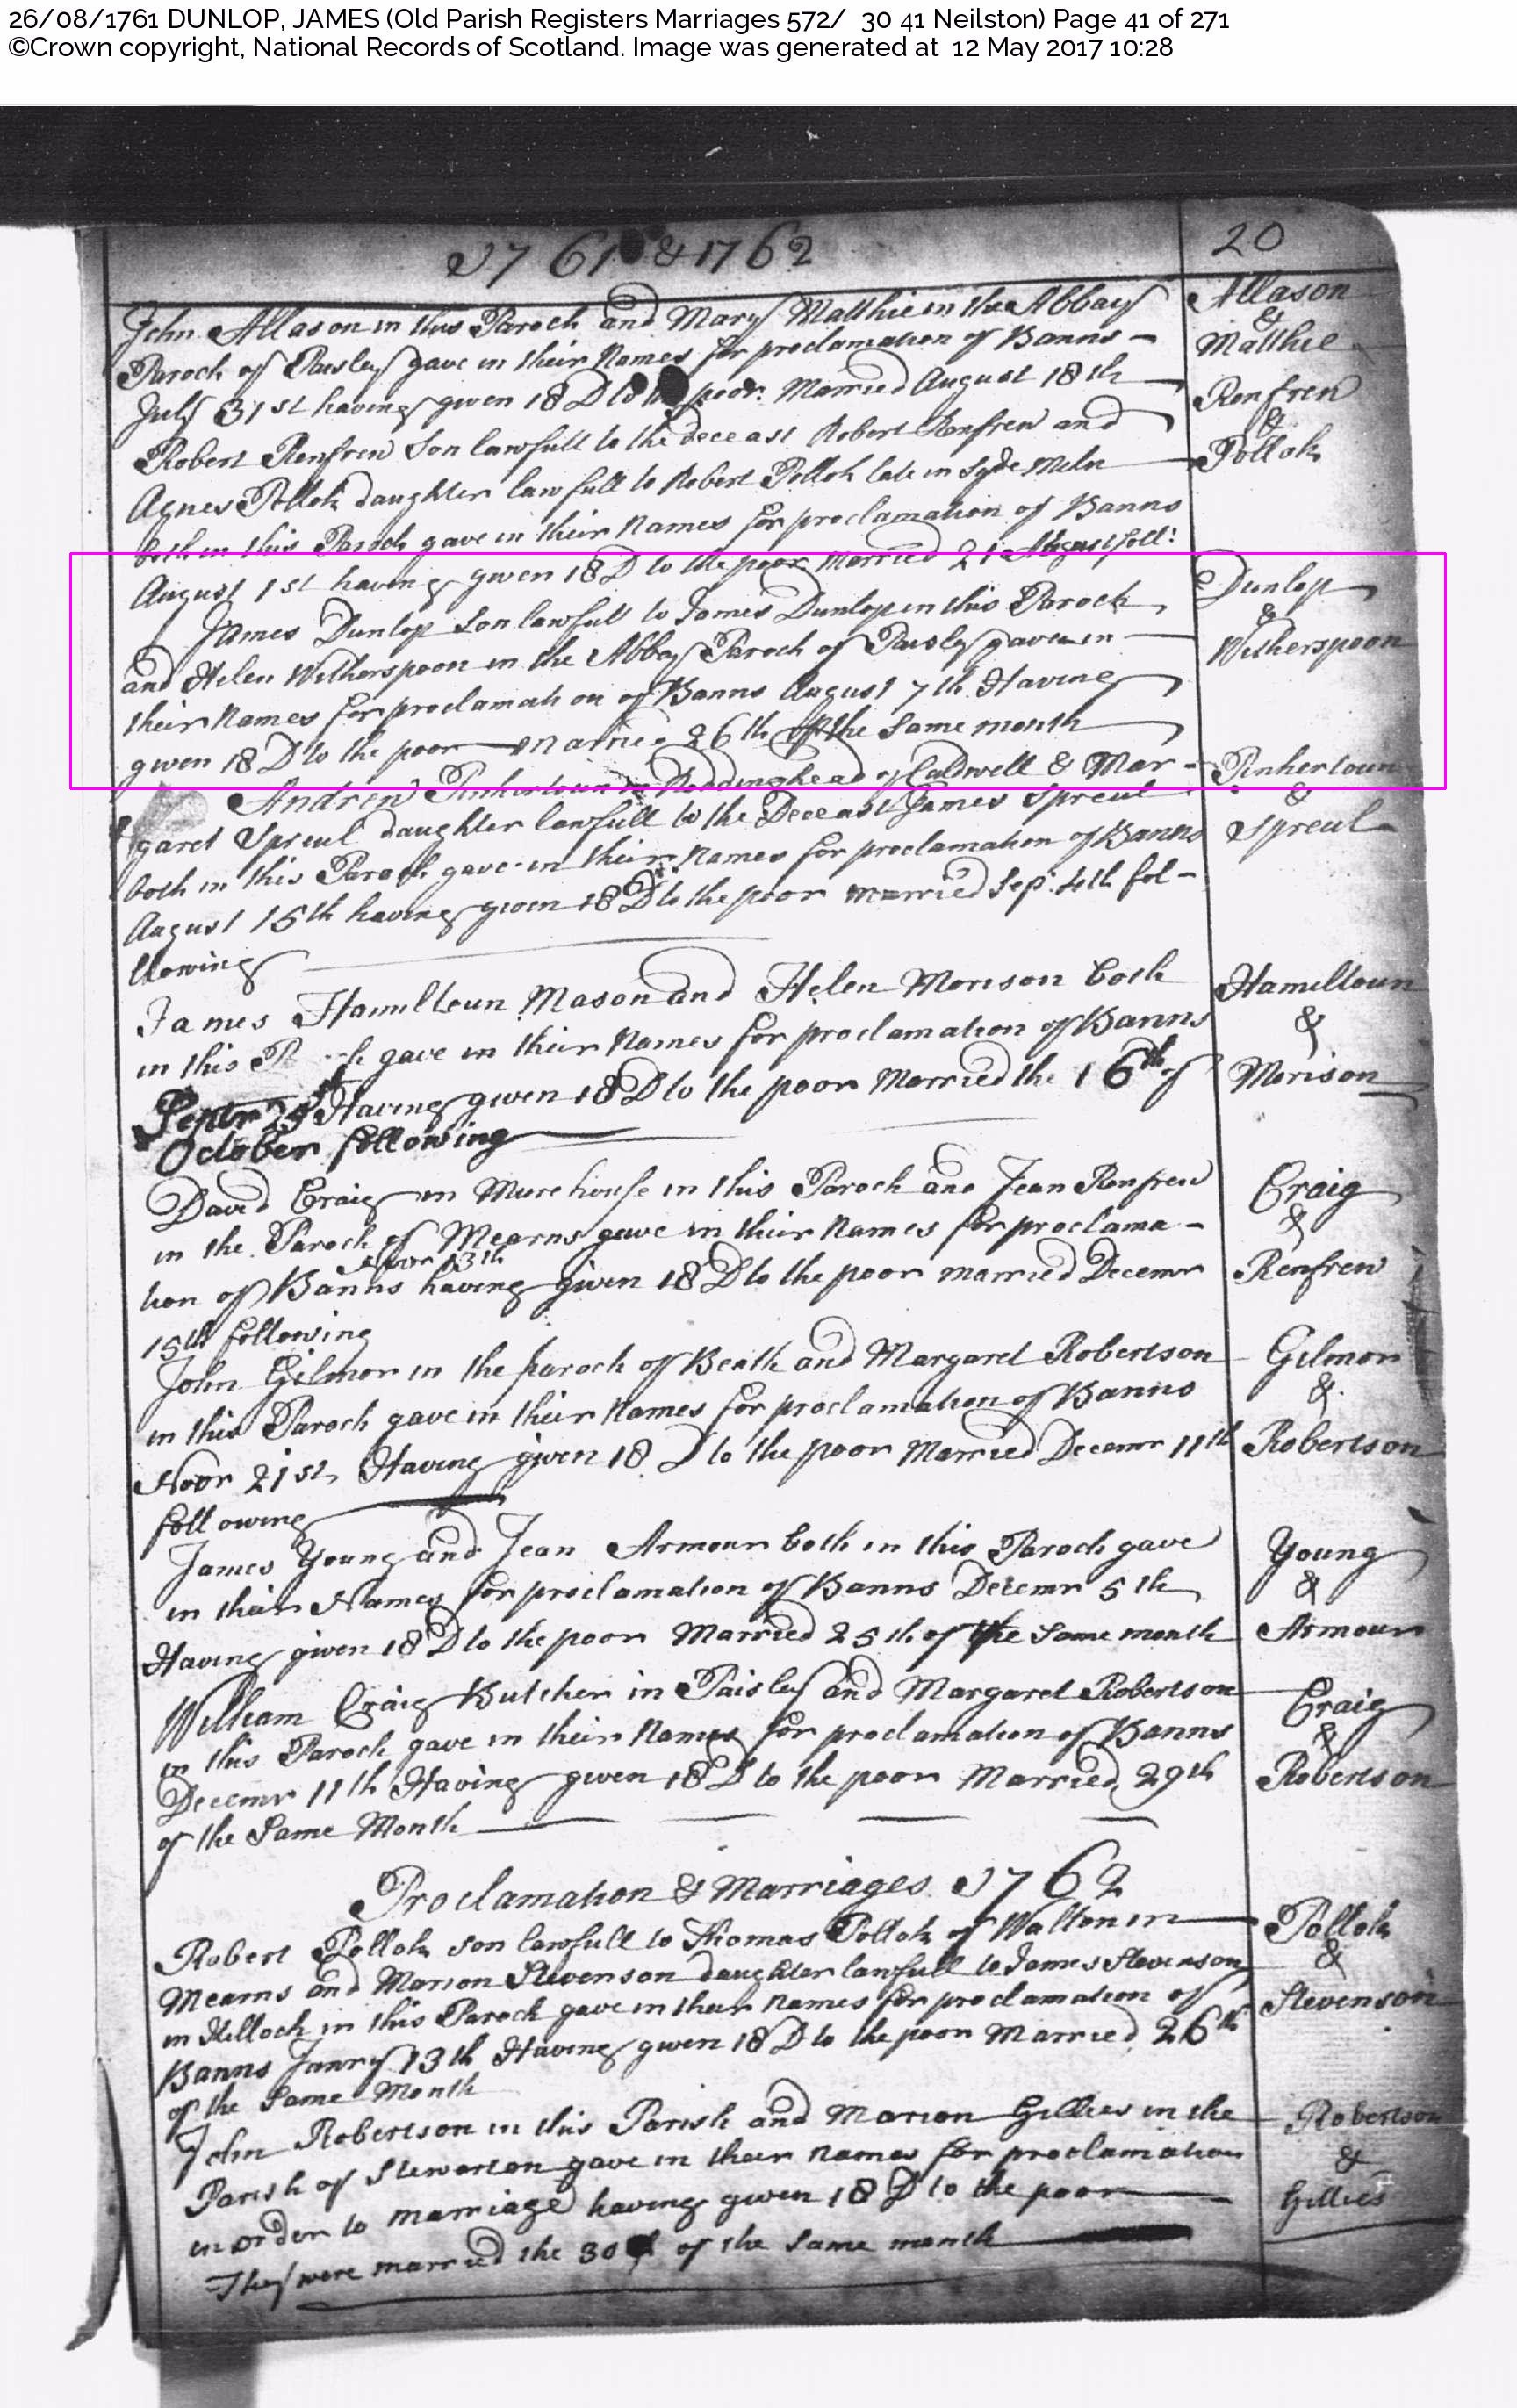 26/08/1761 DUNLOP, JAMES (Old Parish Registers Marriages 572/ 30 41 Neilston) Page 41 of 271
©Crown copyright, National Records of Scotland. Image was generated at 12 May 2017 10:28
1761 & 1762
20
John Allason in this Paroch and Mary Matthie in the Abbay
Paroch of Paisley gave in their Names for proclamation of Banns –
July 31st having given 18 D to poor. Married August 18th
Allason
&
Matthie
Robert Renfrew Son lawfull to the deceast Robert Renfrew and
Agnes Pollok daughter lawfull to Robert Pollok late in Syde Meln
both in this Paroch gave in their Names for proclamation of Banns
August 1st having given 18 D to the poor Married 21 August foll:
Renfrew
&
Pollok
James Dunlop Son lawfull to James Dunlop in this Paroch
and Helen Witherspoon in the Abbay Paroch of Paisley gave in
their Names for proclamation of Banns August 7th Having
given 18 D to the poor Married 26th of the Same month
Dunlop
&
Witherspoon
Andrew Pinkertoun in Reddinghead of Caldwell & Mar-
garet Spreul daughter lawfull to the Deceast James Spreul
both in this Paroch gave in their Names for proclamation of Banns
August 15th having given 18 D to the poor married Sepr. 4th fol-
llowing
Pinkertoun
&
Spreul
James Hamiltoun Mason and Helen Morison both
in this gave in their Names for proclamation of Banns
Septr 25th Having given 18 D to the poor Married the 16th of
October following
Hamiltoun
&
Morison
David Craig in Murehouse in this Paroch and Jean Renfrew
in the Paroch of Mearns gave in their Names for proclama-
Novr 13th
tion of Banns having given 18 D to the poor married Decemr
15th following
Craig
&
Renfrew
John Gilmor in the paroch of Beath and Margaret Robertson
in this Paroch gave in their Names for proclamation of Banns
Novr 21st Having given 18 D to the poor Married Decemr 11th
following
Gilmor
&
Robertson
James Young and Jean Armour both in this Paroch gave
in their Names for proclamation of Banns Decemr 5th
Having given 18 D to the poor Married 25th of the Same month
Young
&
Armour
William Craig Butcher in Paisley and Margaret Robertson
in this Paroch gave in their Names for proclamation of Banns
Decemr 11th Having given 18 D to the poor Married 29th
of the Same Month
Craig
&
Robertson
Proclamation & Marriages 1762
Robert Pollok son lawfull to Thomas Pollok of Walton in
Mearns and Marion Stevenson daughter lawfull to James Stevenson
in Killoch in this Paroch gave in their Names for proclamation of
Banns Janry 13th Having given 18 D to the poor Married 26th
of the Same Month
Pollok
&
Stevenson
John Robertson in this Parish and Marion Gillies in the
Parish of Stewarton gave in their names for proclamation
in order to marriage having given 18 D to the poor
They were married the 30 of the same month
Robertson
&
Gillies